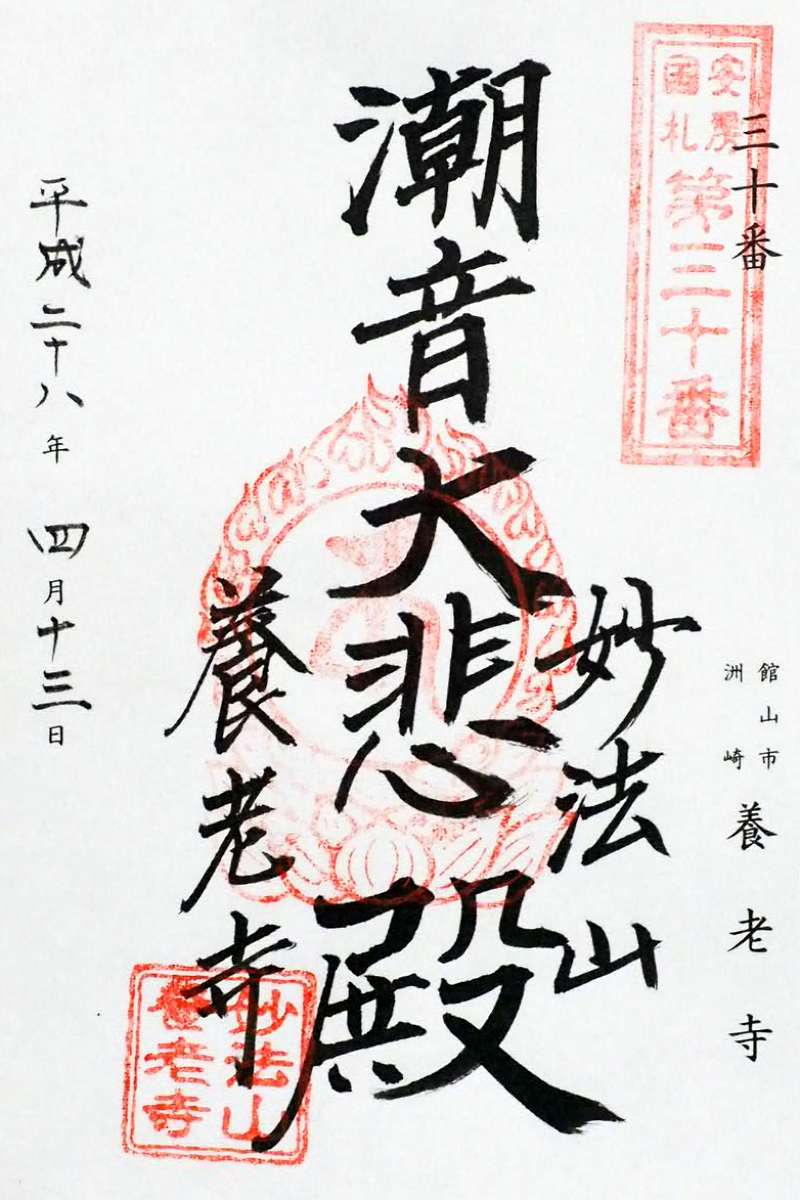 三十番
安房
國札
第三十番
館山市
洲崎
養老寺
潮音大悲殿
妙法山
養老寺
平成二十八年 四月十三日
妙法山
養老寺